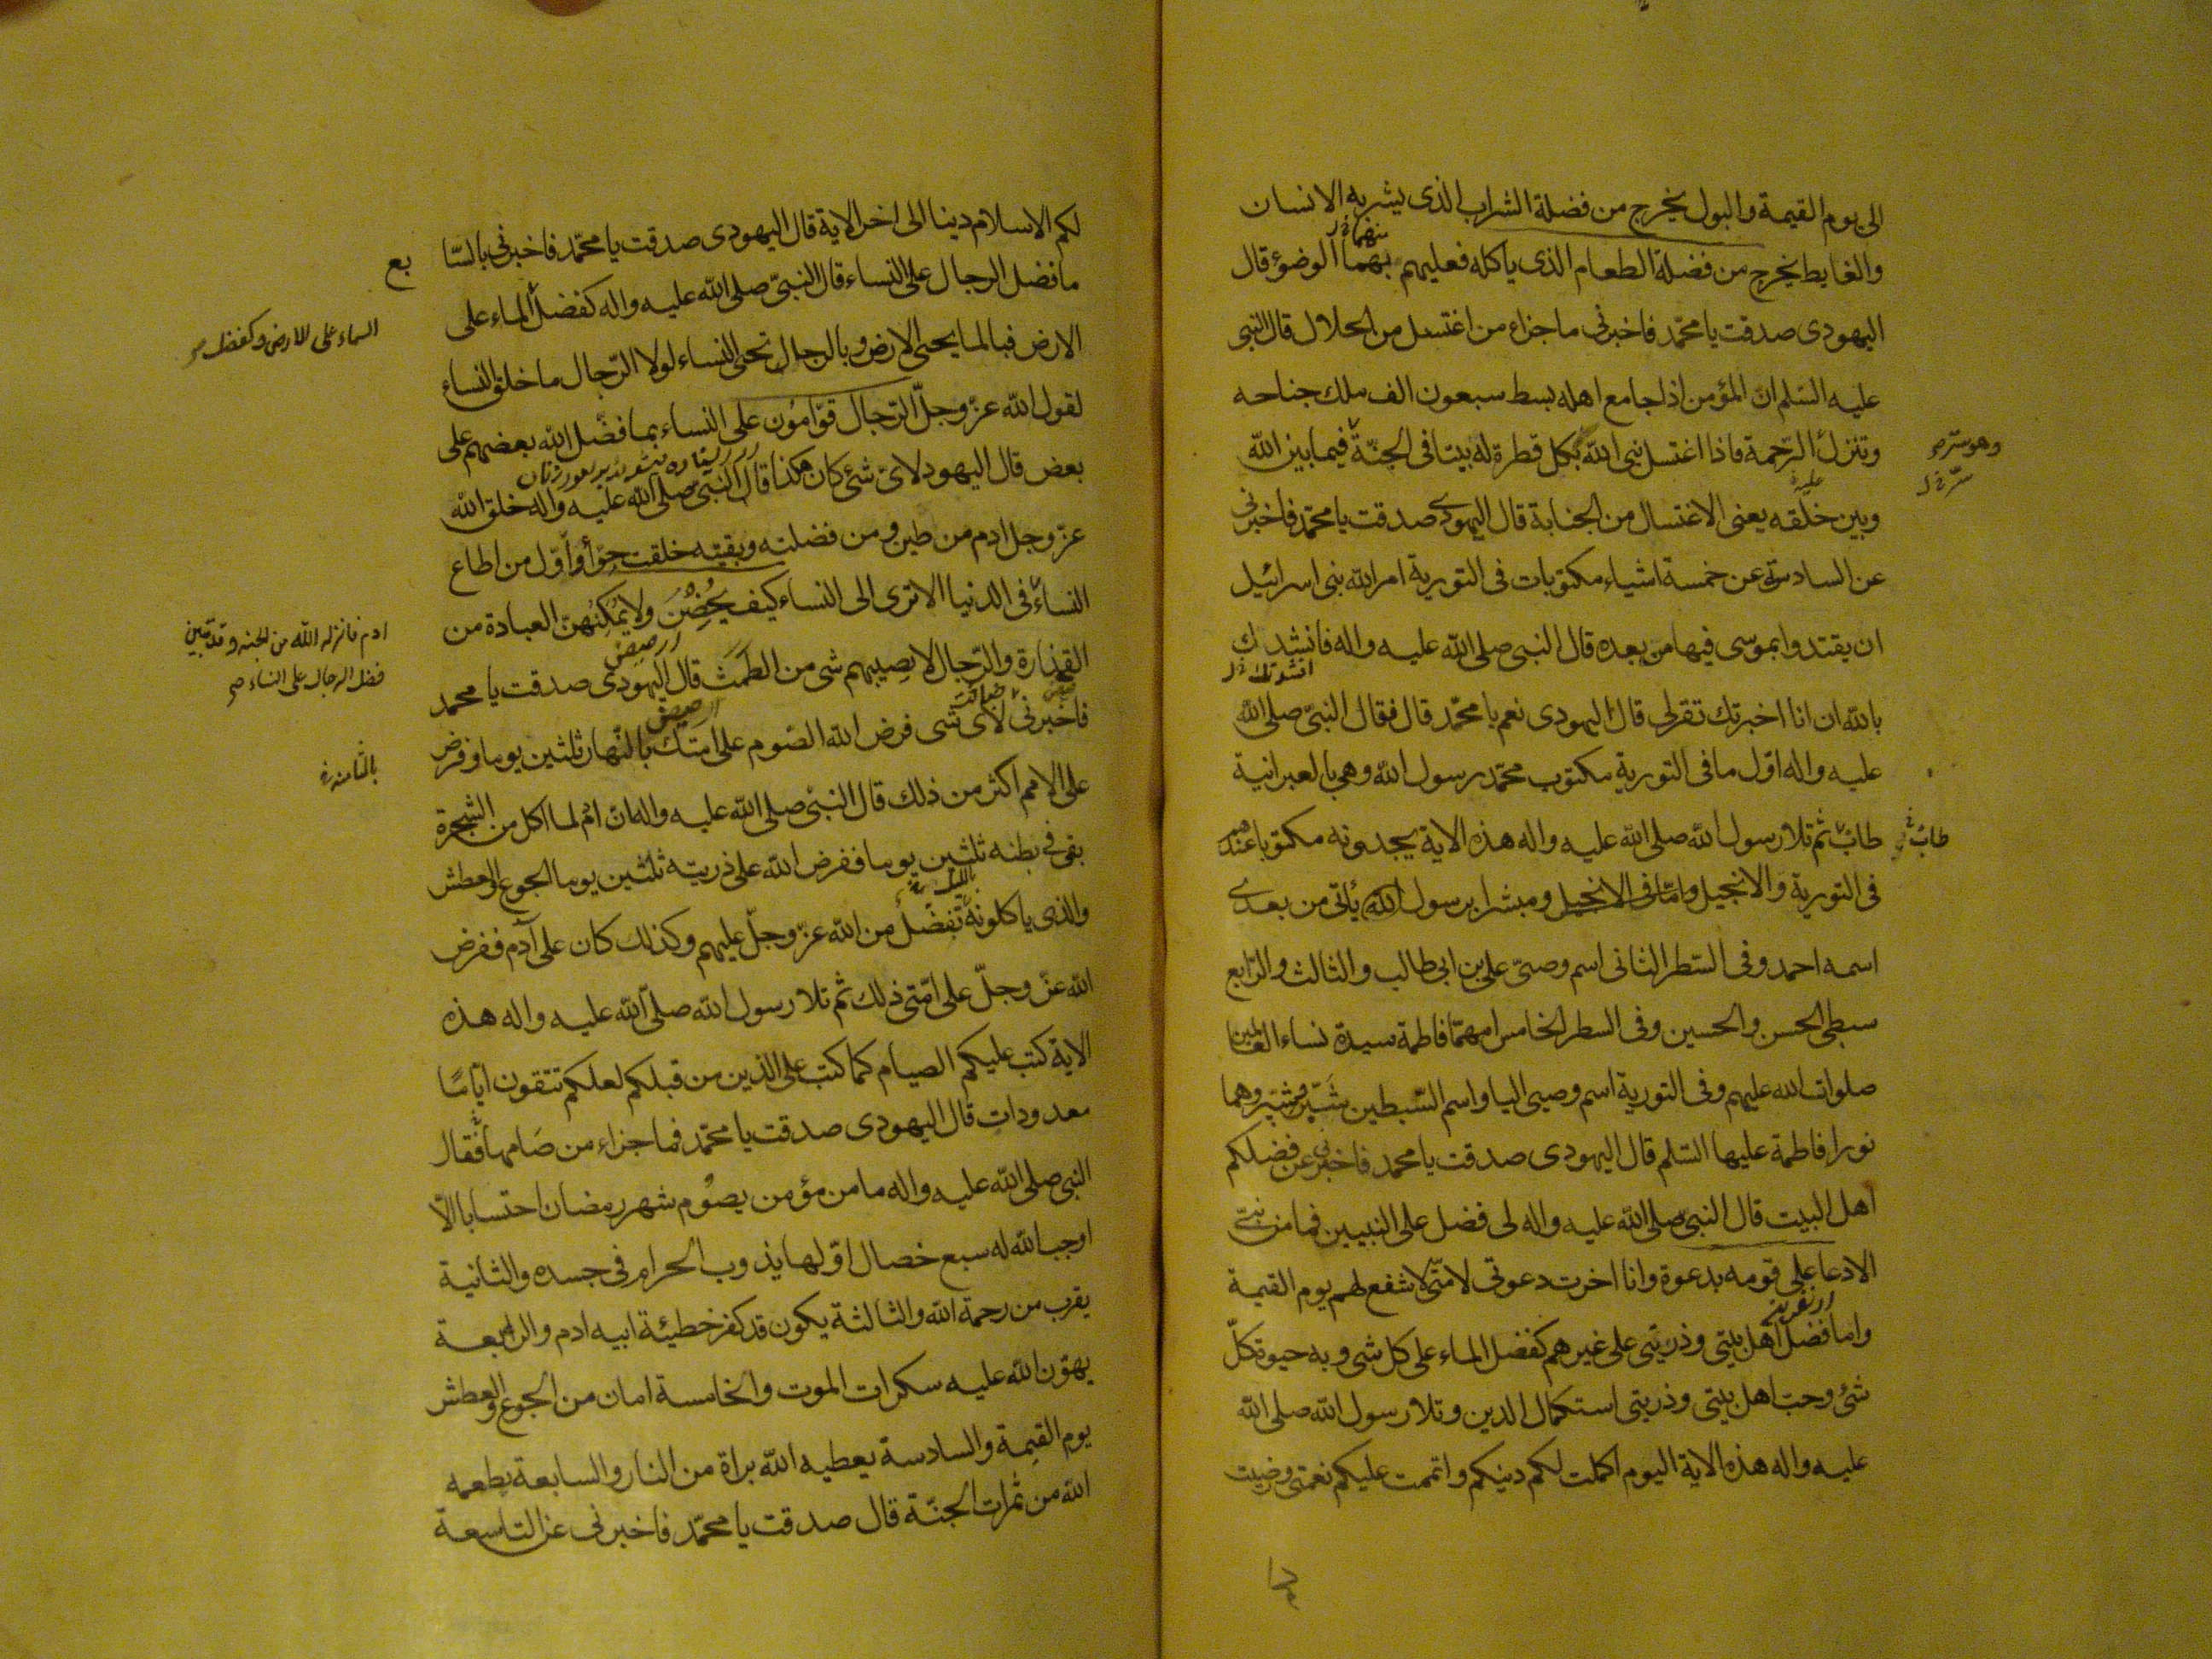 الى يوم القيمة والبول يخرج من فضلة الشراب الذى يشربه الانسان
والغايط يخرج من فضلة الطعام الذى ياكله فعليهم بهما الوضوء قال
اليهودى صدقت يا محمّد فاخبرنى ما جزاء من اغتسل من الحلال قال النبى
عليه السّلم انّ المؤمن اذا جامع اهله بسط سبعون الف ملك جناحه
وتنزل الرّحمة فاذا اغتسل بنى الله بكل قطرة له بيتا فى الجنّة فيما بين الله
وهو سرّ
وبين خلقه يعنى الاغتسال من الجنابة قال اليهودى صدقت يا محمّد فاخبرنى
عن السادسة عن خمسة اشياء مكتوبات فى التورية امر الله بنى اسرائيل
ان يقتدوا بموسى فيها من بعده قال النبى صلى الله عليه واله فانشدك
بالله ان انا اخبرتك تقر لى قال اليهودى نعم يا محمّد قال فقال النبىّ صلى الله
عليه واله اوّل ما فى التورية مكتوب محمّد رسول الله وهى بالعبرانية
طابٌ ثم تلا رسول الله صلى الله عليه واله هذه الاية يجدونه مكتوبا عندهم
طابٌ
فى التورية والانجيل وامّا فى الانجيل ومبشرا برسول الله ياتى من بعدى
اسمه احمد وفى السّطر الثانى اسم وصيّى على بن ابى طالب والثالث والرّابع
سبطى الحسن والحسين وفى السطر الخامس امهمّا فاطمة سيدة نساء العالمين
صلوات الله عليهم وفى التورية اسم وصيى اليا واسم السّبطين شبّر وشبير وهما
نورا فاطمة عليها السّلم قال اليهودى صدقت يا محمد فاخبرنى عن فضلكم
اهل البيت قال النبىّ صلى الله عليه واله لى فضل على النبيين فما من نبىّ
الا دعا على قومه بدعوة وانا اخرت دعوتى لامتّى لاشفع لهم يوم القيمة
واما فضل اهل بيتى وذريّتى على غيرهم كفضل الماء على كل شى وبه حيوة كلّ
شئ وحبّ اهل بيتى وذريتى استكمال الدين وتلا رسول الله صلى الله
عليه واله هذه الاية اليوم اكملت لكم دينكم واتممت عليكم نعمتى ورضيت
لكم الاسلام دينا الى اخر الاية قال اليهودى صدقت يا محمّد فاخبرنى بالسّا
بع
ما فضل الرجال على النساء قال النبىّ صلى الله عليه واله كفضل الماء على
السماء على الارض وكفضل
الارض فبالما يحيى الارض وبالرجال تحيى النساء لولا الرّجال ما خلق النساء
لقول الله عزّ وجلّ الرّجال قوّامون على النساء بما فضّل الله بعضهم على
بعض قال اليهود لاىّ شئ كان هكذا قال النبىّ صلى الله عليه واله خلق الله
عزّ وجل ادم من طين ومن فضلته وبقيته خلقت حوّا واوّل من اطاع
النساء فى الدنيا الا ترى الى النساء كيف يحضن ولا يمكنهنّ العبادة من
ادم فانزله الله من الجنه وقد بين
فضل الرجال على النساء
القذارة والرّجال لا يصيبهم شى من الطمث قال اليهودى صدقت يا محمد
فاخبرنى لاى شى فرض الله الصّوم على امتك بالنّهار ثلثين يوما وفرض
بالثامنة
على الامم اكثر من ذلك قال النبىّ صلى الله عليه واله انّ ادم لما اكل من الشجرة
بقى فى بطنه ثلثين يوما ففرض الله على ذريتّه ثلثين يوما الجوع والعطش
والذى ياكلونه تفضل من الله عزّ وجلّ عليهم وكذلك كان على آدم ففرض
الله عزّ وجلّ على امّتى ذلك ثم تلا رسول الله صلّى الله عليه واله هذه
الاية كتب عليكم الصيام كما كتب على الذين من قبلكم لعلكم تتقون ايّامًا
معدودات قال اليهودى صدقت يا محمّد فما جزاء من صامها فقال
النبى صلى الله عليه واله ما من مؤمن يصوم شهر رمضان احتسابا الاّ
اوجب الله له سبع خصال اوّلها يذوب الحرام فى جسده والثانية
يقرب من رحمة الله والثالثة يكون قد كفر خطيئة ابيه ادم والرابعة
يهوّن الله عليه سكرات الموت والخامسة امان من الجوع والعطش
يوم القيمة والسادسة يعطيه الله براة من النار والسابعة يطعمه
الله من ثمرات الجنّة قال صدقت يا محمّد فاخبرنى عن التاسعة